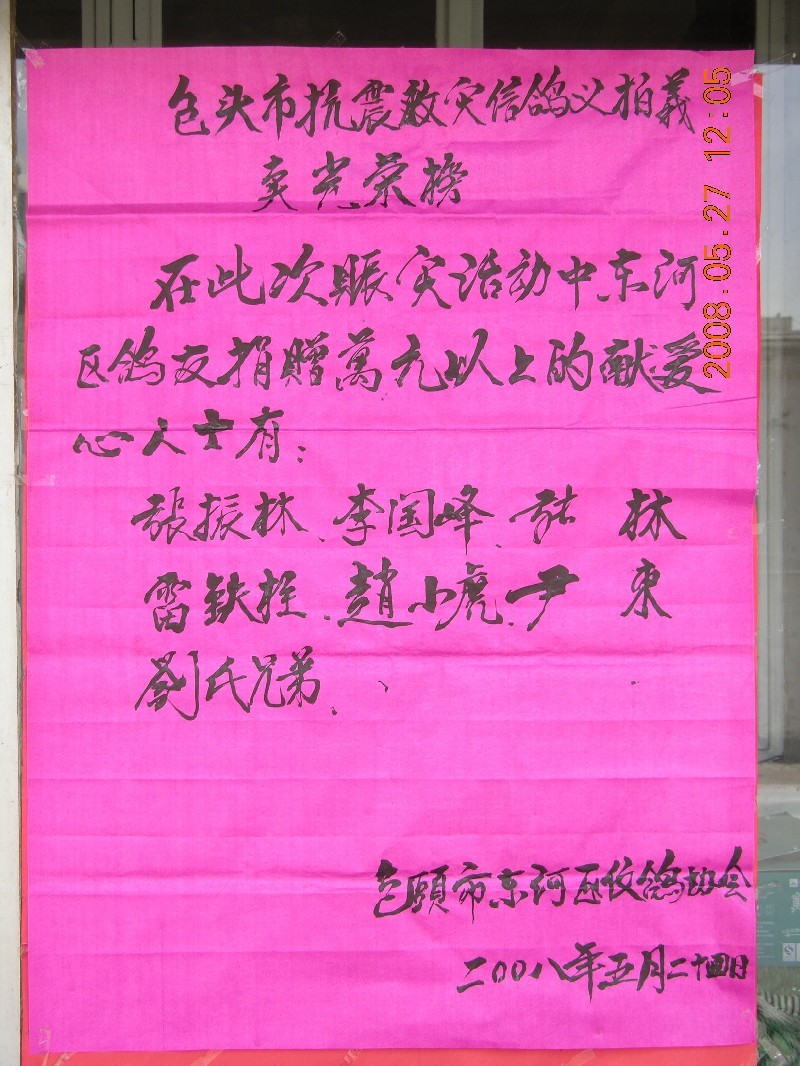 包头市抗震救灾信鸽义拍義
卖光荣榜
在此次赈灾活动中东河
区鸽友捐赠萬元以上的献爱
心人士有：
張振林、李国峰、張 林
雷铁拴、趙小虎、尹 东
劉氏兄弟、
包頭市东河区信鸽协会
二00八年五月二十四日
2008.05.27 12:05